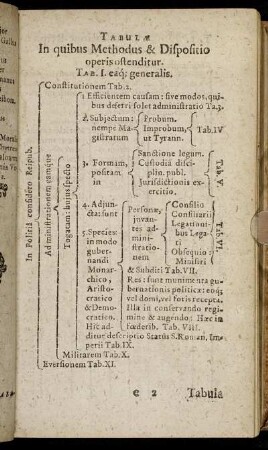 TABULÆ
In quibus Methodus & Dispositio
operis ostenditur.
TAB. I. eaq; generalis.
In Politiâ considero Reipub.
Constitutionem Tab. 2.
Administrationem eamque
Togatam: hujus specto
1 Efficientem causam: sive modos, qui-
bus deferri solet administratio Ta. 3.
2. Subjectum:
nempe Ma-
gistratum
Probum.
Improbum,
ut Tyrann.
Tab. IV
3. Formam,
positam
in
Sanctione legum.
Custodiâ disci-
plin. publ.
Jurisdictionis ex-
ercitio.
Tab. V.
4. Adjun-
cta: sunt
Personæ,
juvan-
tes ad-
mini-
strati-
onem
Consilio
Consiliarii
Legationi-
bus Lega-
ti
Obsequio
Ministri
Tab. VI.
& Subditi Tab. VII.
Res: sunt munimenta gu-
bernationis politicæ: eoq;
vel domi, vel foris recepta.
Illa in conservando regi-
mine & augendo: Hæc in
fœderib. Tab. VIII.
5. Species:
in modo
guber-
nandi
Monar-
chico,
Aristo-
cratico
& Demo-
cratico.
Hic ad-
ditur descriptio Status S. Roman. Im-
perii Tab. IX.
Militarem Tab. X.
Eversionem Tab. XI.
C 2
Tabula